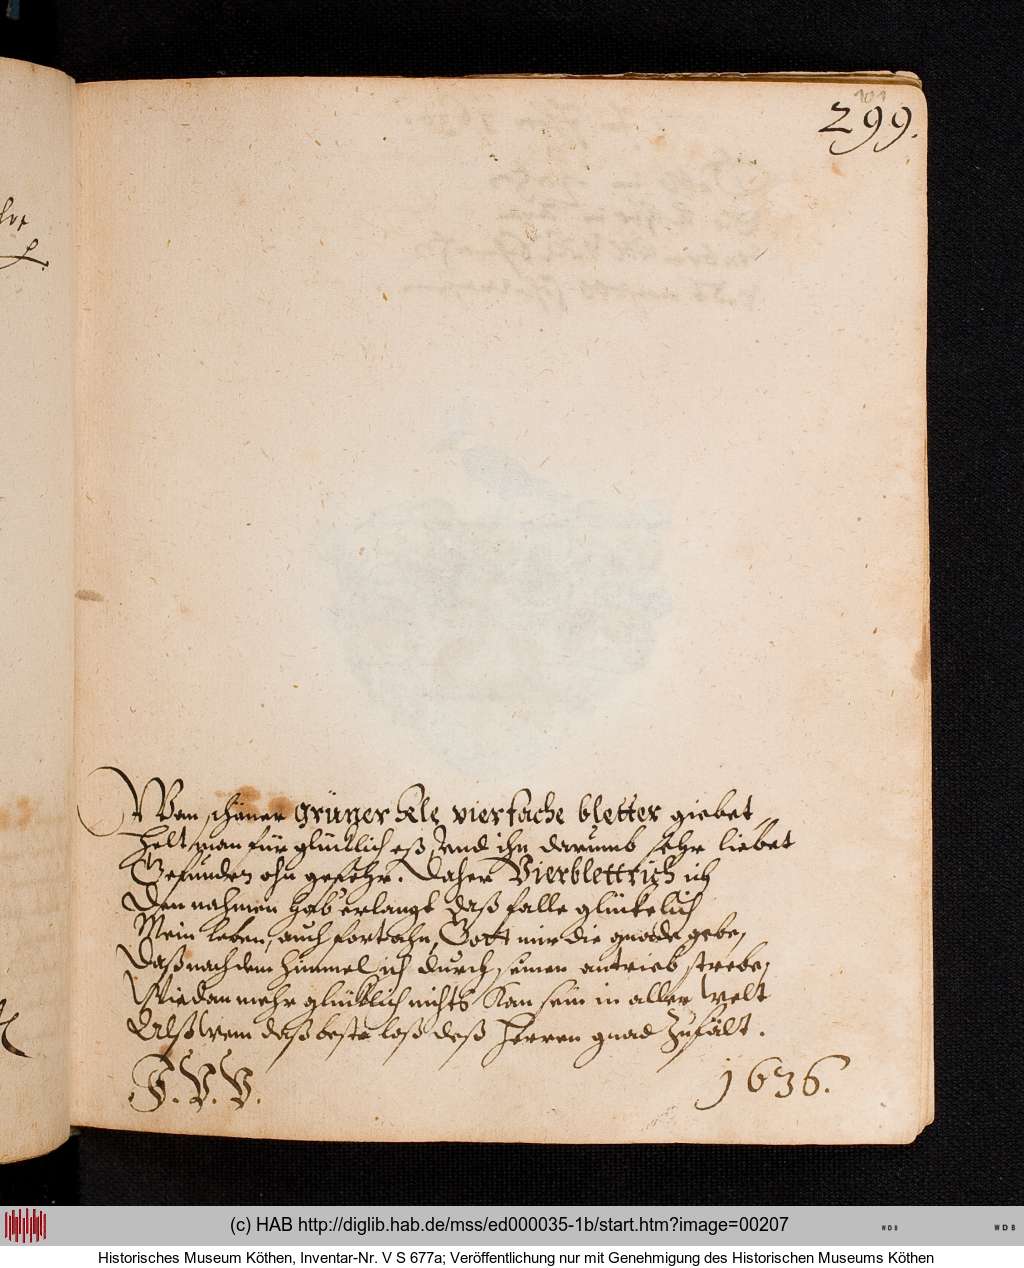 101
299.
Wan schöner grüner Kle vierfache bletter giebet,
Helt man für glücklich eß, Vnd ihn darumb sehr liebet
Gefunden ohn gefehr. Daher Vierblettrich ich
Den nahmen hab' erlangt daß falle glückelich
Mein leben, auch fortahn, Gott mir die gnade gebe,
Daß nach dem himmel ich durch seinen antrieb strebe,
Wiedan mehr glücklich nichts Kan sein in aller welt
Alß wem daß beste loß deß Herren gnad Zufält.
F. V. V.
1636.
(c) HAB http://diglib.hab.de/mss/ed000035-1b/start.htm?image=00207
WDB
WDB
Historisches Museum Köthen, Inventar-Nr. V S 677a; Veröffentlichung nur mit Genehmigung des Historischen Museums Köthen